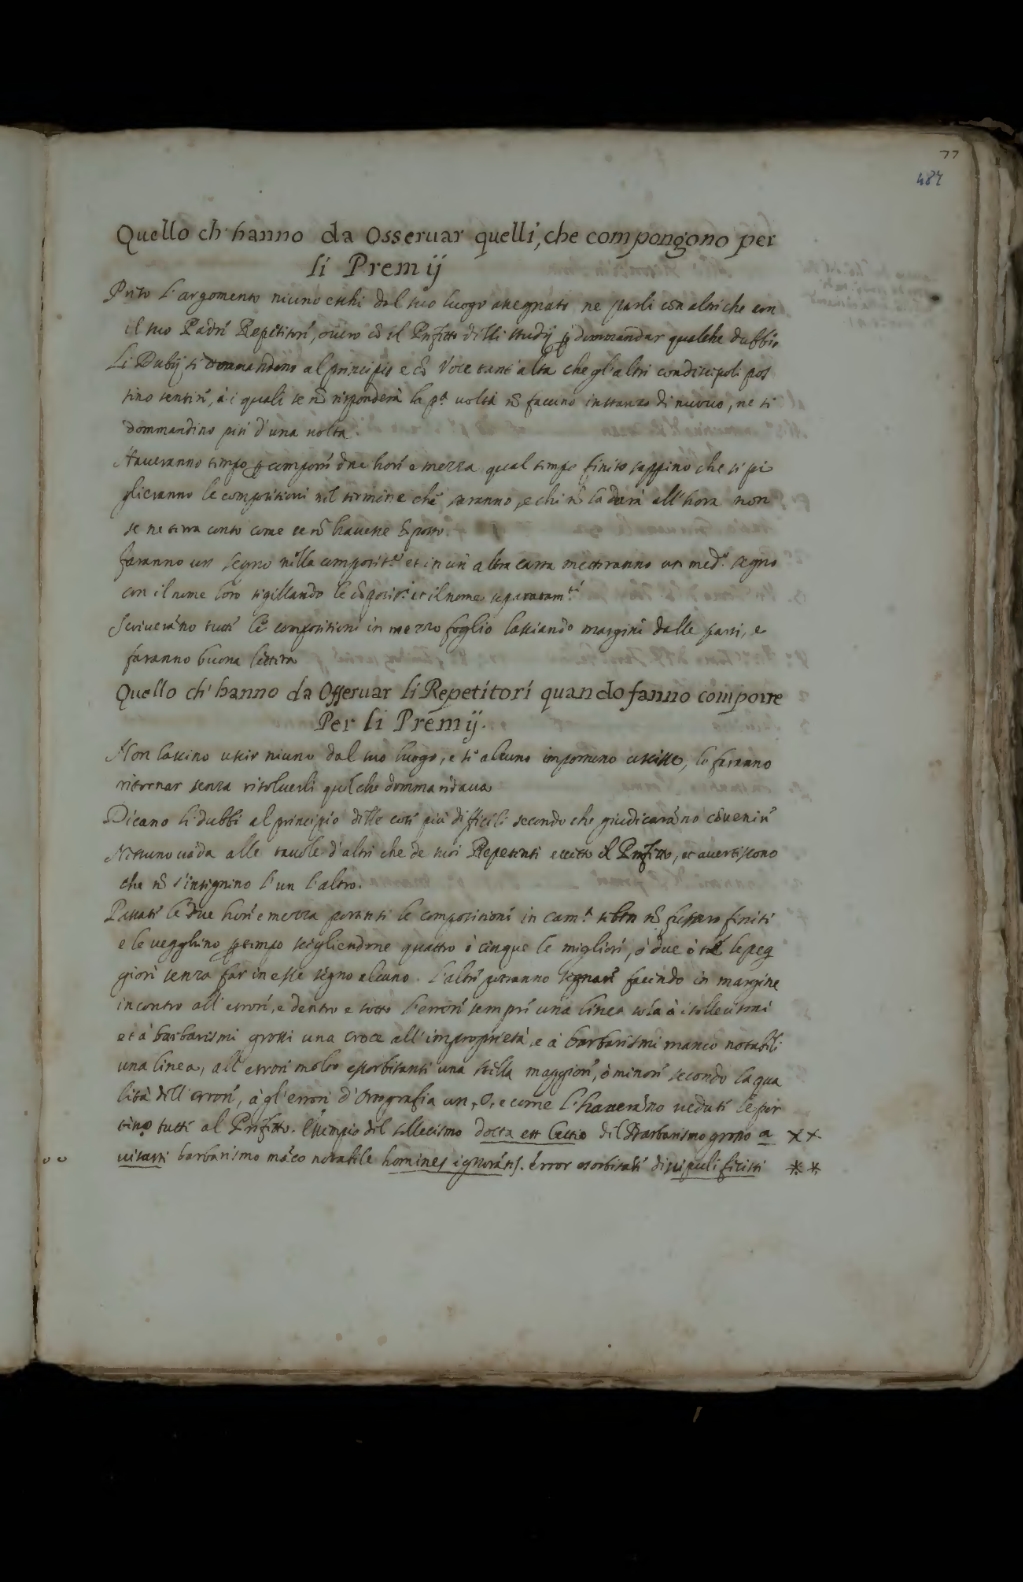 77
487
Quello ch'hanno da Osseruar quelli, che compongono per
li Premij
L'argomento niuno eschi dal suo luogo assegnato, ne parli con altri che con
il suo Padre Repetitore, ouero cõ il Prefetto delli studij ꝑ dommandar qualche dubbio
Li Dubij si dommandino al principio e cõ Voce tant'alta che gl'altri condiscepoli pos
sino sentire, à i quali se nõ risponderà la pª uolta nõ faccino instanza di nuouo, ne si
dommandino più d'una uolta.
Haueranno tempo ꝑ componere due hore e mezza qual tempo finito sappino che si pi
glieranno le compositioni nel termine che saranno, e chi nõ la darà all'hora non
se ne terrà conto come se nõ hauesse cõposto.
faranno un segno nella et in un'altra carta metteranno un medº segno
con il nome loro sigillando le et il nome
Scriuerãno tutti le compositioni in mezzo foglio lasciando margine dalle parti, e
faranno buona lettera
Quello ch'hanno da Osseruar li Repetitori quando fanno comporre
Per li Premij.
Non lascino uscir niuno dal suo luogo, e se alcuno uscisse, lo faranno
ritornar senza risoluerli quel che dommandaua
Dicano li dubbi al principio delle cose più difficili secondo che giudicarãno cõuenire
Nessuno uada alle tauole d'altri che de suoi Repetenti eccetto il Prefetto, et auertiscono
che nõ s'insegnino l'un l'altro.
Passate le due hore e mezza portinsi le compositioni in camª se ben nõ fussero finite
e le uegghino ꝑ tempo scegliendone quattro ò cinque le migliori, ò due ò tre le peg
giori senza far in esse segno alcuno. L'altre potranno segnare facendo in margine
incontro all'errore, e dentro e sotto l'errore sempre una linea à i sollecismi
et à barbarismi grossi una croce all'improprietà, e à barbarismi manco notabili
una linea, all'errori molto essorbitanti una stella maggiore, ò minore secondo la qua
lità dell'errore, à gl'errori d'Ortografia un, O, e come l'hauerãno uedute le por
tino tutte al Prefetto. Essempio del sollecismo docta est lectio del Barbarismo grosso a ××
uisasti barbarismo mãco notabile homines ignorãtes. error esorbitãte discipuli fecisti **